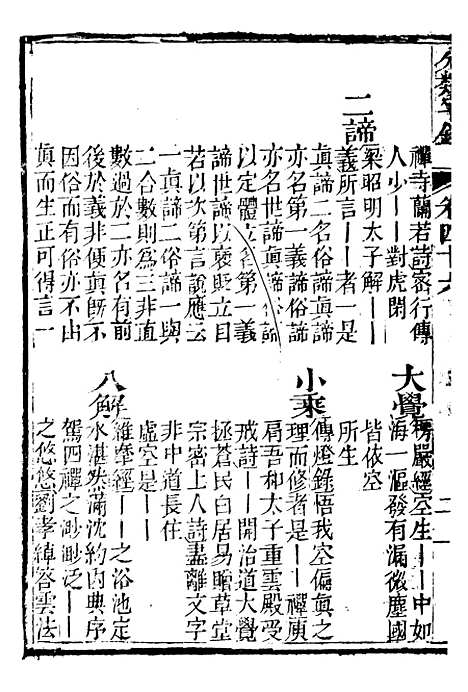 分類字錦
卷四十六
禪寺蘭若詩密行傳
人少丨丨對虎閑
二諦
梁昭明太子解丨丨
義所言丨丨者一是
眞諦二名俗諦眞諦
亦名第一義諦俗諦
亦名世諦眞諦俗諦
以定體立名第一義
諦世諦以褒貶立目
若以次第言說應云
一眞諦二俗諦一與
二合數則爲三非直
數過於二亦名有前
後於義非便眞旣不
因俗而有俗亦不由
眞而生正可得言一
大覺
楞嚴經空生丨丨中如
海一漚發有漏微塵國
皆依空
所生
小乘
傳燈錄悟我空偏眞之
理而修者是丨丨禪庾
肩吾和太子重雲殿受
戒詩丨丨開治道大覺
拯蒼民白居易贈草堂
宗密上人詩盡離文字
非中道長住
虛空是丨丨
八解
維摩經丨丨之浴池定
水湛然滿沈約內典序
駕四禪之渺渺泛丨丨
之悠悠劉孝綽答雲法